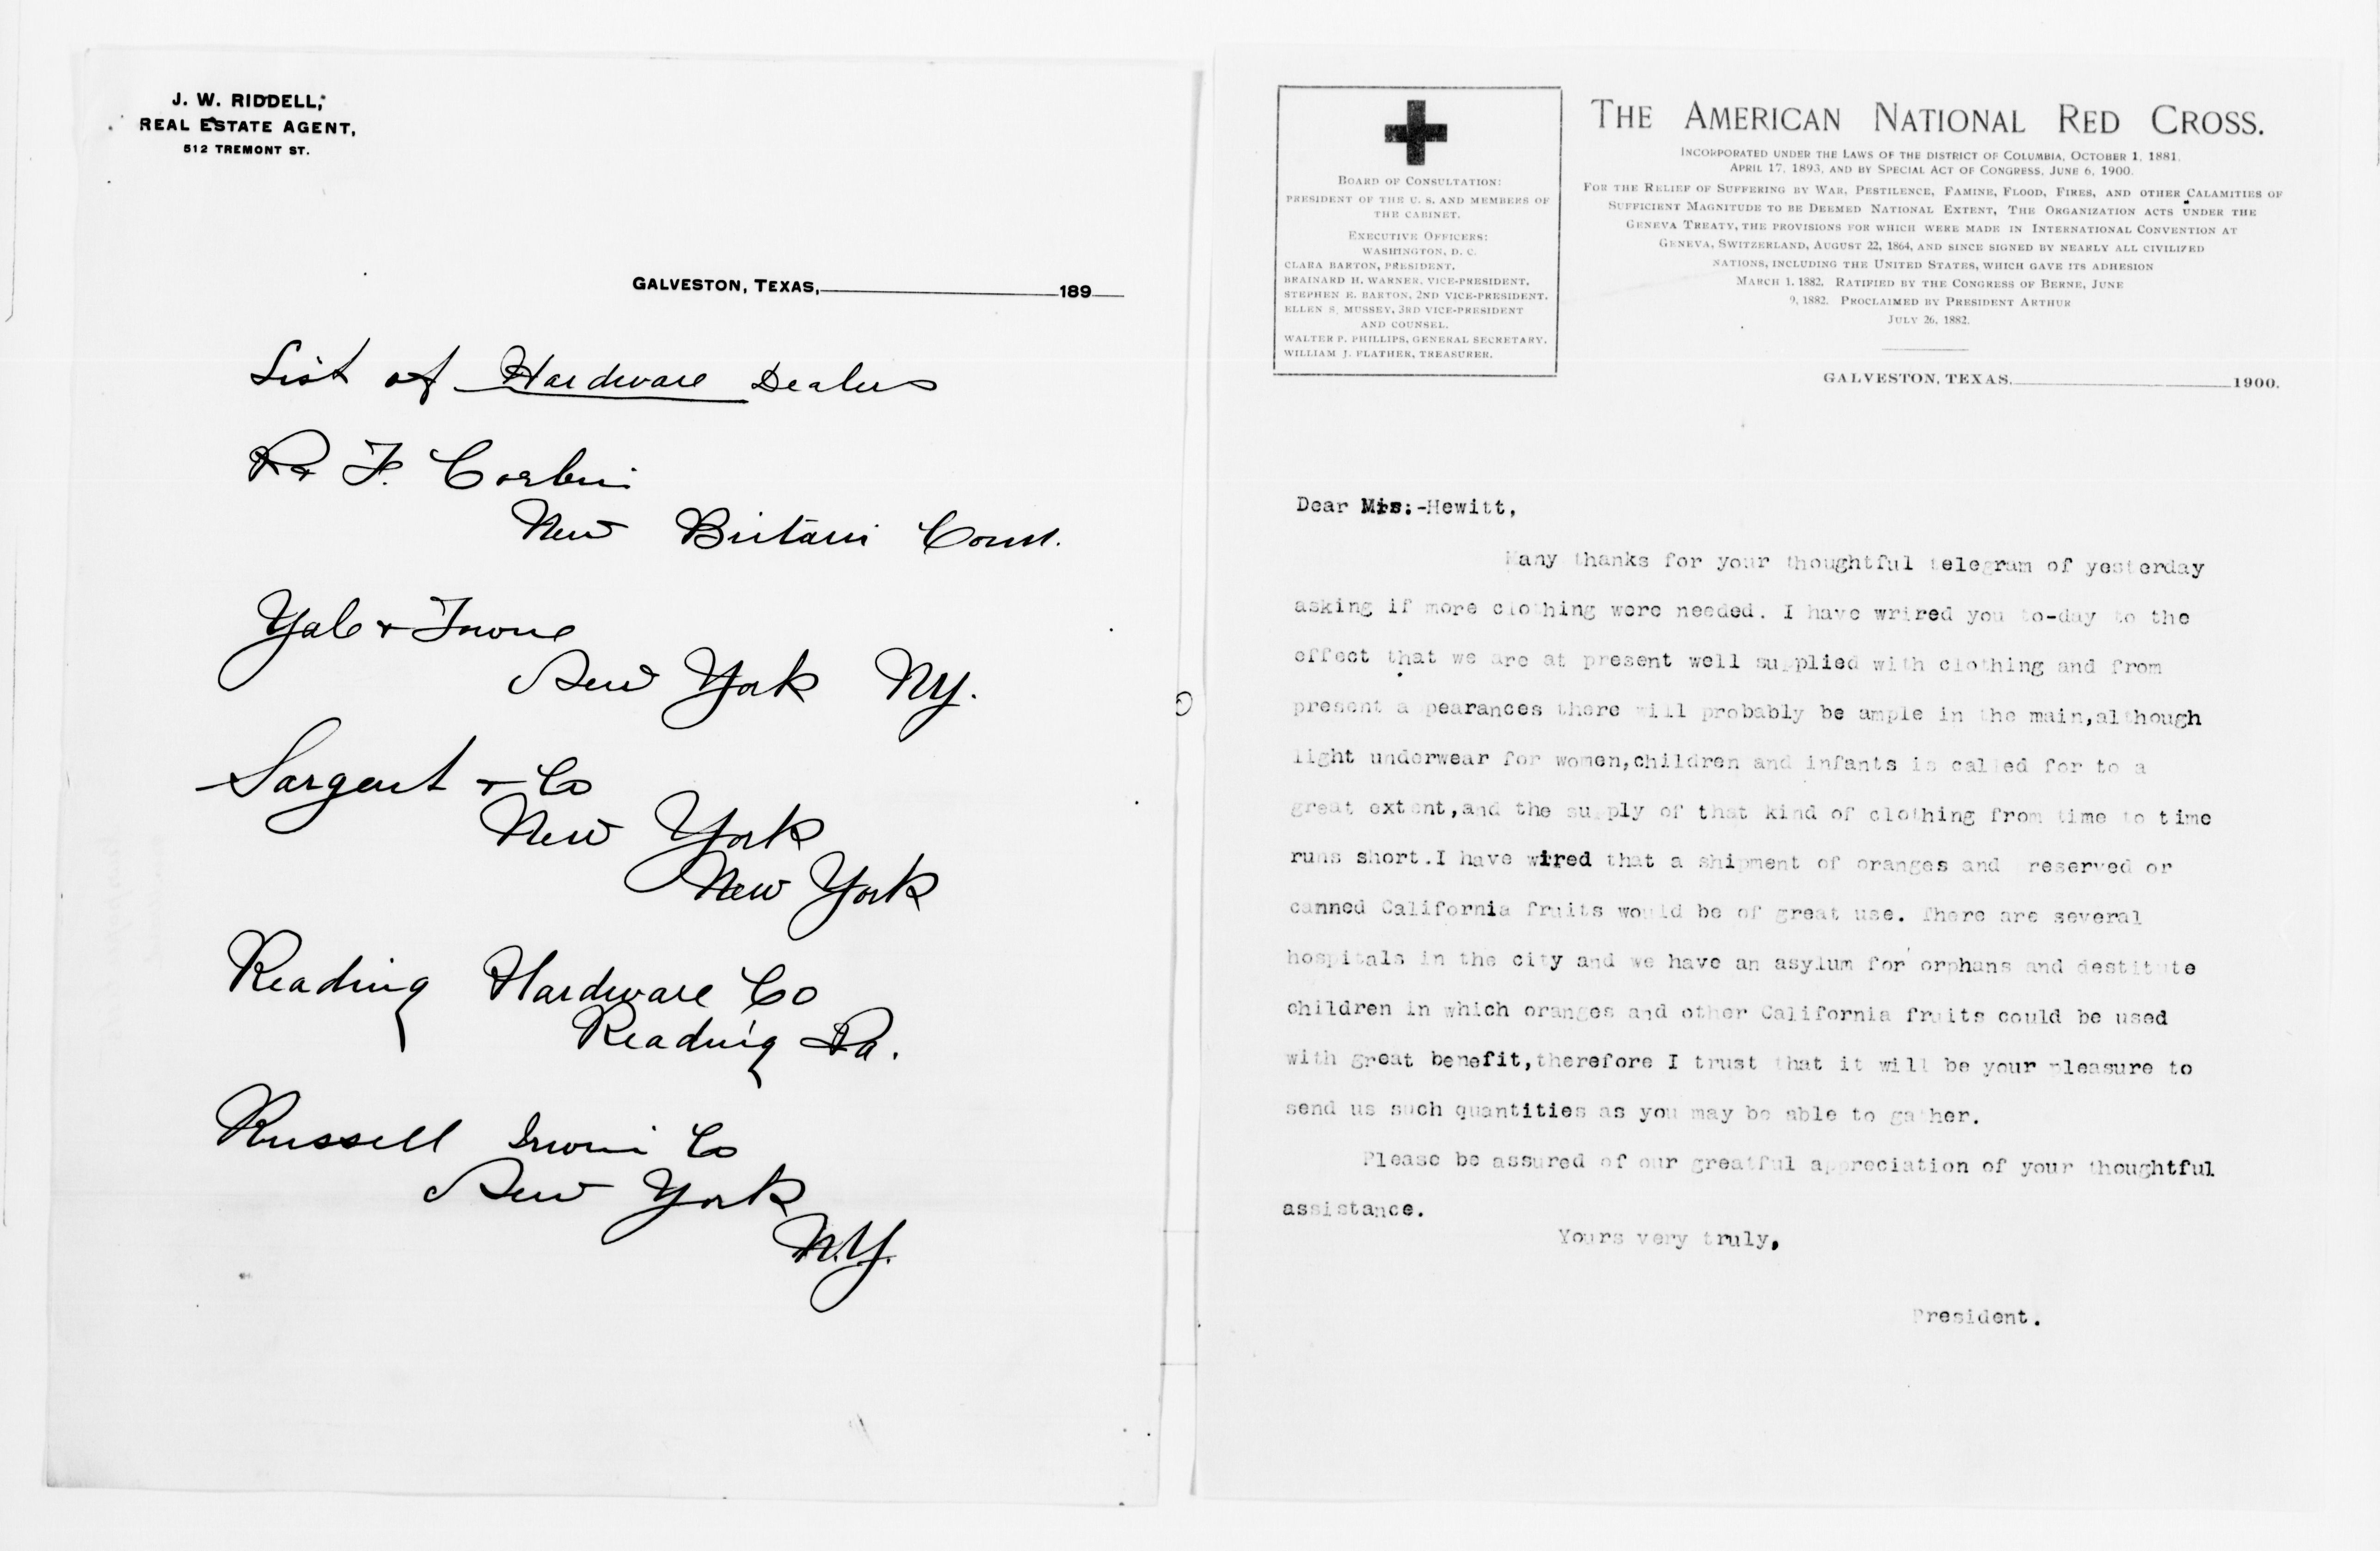 J. W. RIDDELL,
REAL ESTATE AGENT,
512 TREMONT ST.
GALVESTON, TEXAS, 189
List of Hardware Dealers
P & F. Corbin
New Britain Conn.
Yale & Towne
New York NY.
Sargent & Co
New York
New York
Reading Hardware Co
Reading Pa.
Russell Irwin Co
New York
N.Y.
THE AMERICAN NATIONAL RED CROSS.
INCORPORATED UNDER THE LAWS OF THE DISTRICT OF COLUMBIA, OCTOBER 1, 1881,
APRIL 17, 1893, AND BY SPECIAL ACT OF CONGRESS, JUNE 6, 1900.
FOR THE RELIEF OF SUFFERING BY WAR, PESTILENCE, FAMINE, FLOOD, FIRES, AND OTHER CALAMITIES OF
SUFFICIENT MAGNITUDE TO BE DEEMED NATIONAL EXTENT, THE ORGANIZATION ACTS UNDER THE
GENEVA TREATY, THE PROVISIONS FOR WHICH WERE MADE IN INTERNATIONAL CONVENTION AT
GENEVA, SWITZERLAND, AUGUST 22, 1864, AND SINCE SIGNED BY NEARLY ALL CIVILIZED
NATIONS, INCLUDING THE UNITED STATES, WHICH GAVE ITS ADHESION
MARCH 1, 1882, RATIFIED BY THE CONGRESS OF BERNE, JUNE
9, 1882. PROCLAIMED BY PRESIDENT ARTHUR
JULY 26, 1882.
BOARD OF CONSULTATION:
PRESIDENT OF THE U. S. AND MEMBERS OF
THE CABINET.
EXECUTIVE OFFICERS:
WASHINGTON, D. C.
CLARA BARTON, PRESIDENT.
BRAINARD H. WARNER, VICE-PRESIDENT.
STEPHEN E. BARTON, 2ND VICE-PRESIDENT.
ELLEN S. MUSSEY, 3RD VICE-PRESIDENT
AND COUNSEL.
WALTER P. PHILLIPS, GENERAL SECRETARY.
WILLIAM J. FLATHER, TREASURER.
GALVESTON, TEXAS, 1900.
Dear Mrs:-Hewitt,
Many thanks for your thoughtful telegram of yesterday
asking if more clothing were needed. I have wrired you to-day to the
effect that we are at present well supplied with clothing and from
present appearances there will probably be ample in the main,although
light underwear for women,children and infants is called for to a
great extent,and the supply of that kind of clothing from time to time
runs short.I have wired that a shipment of oranges and preserved or
canned California fruits would be of great use. There are several
hospitals in the city and we have an asylum for orphans and destitute
children in which oranges and other California fruits could be used
with great benefit,therefore I trust that it will be your pleasure to
send us such quantities as you may be able to gather.
Please be assured of our greatful appreciation of your thoughtful
assistance.
Yours very truly,
President.